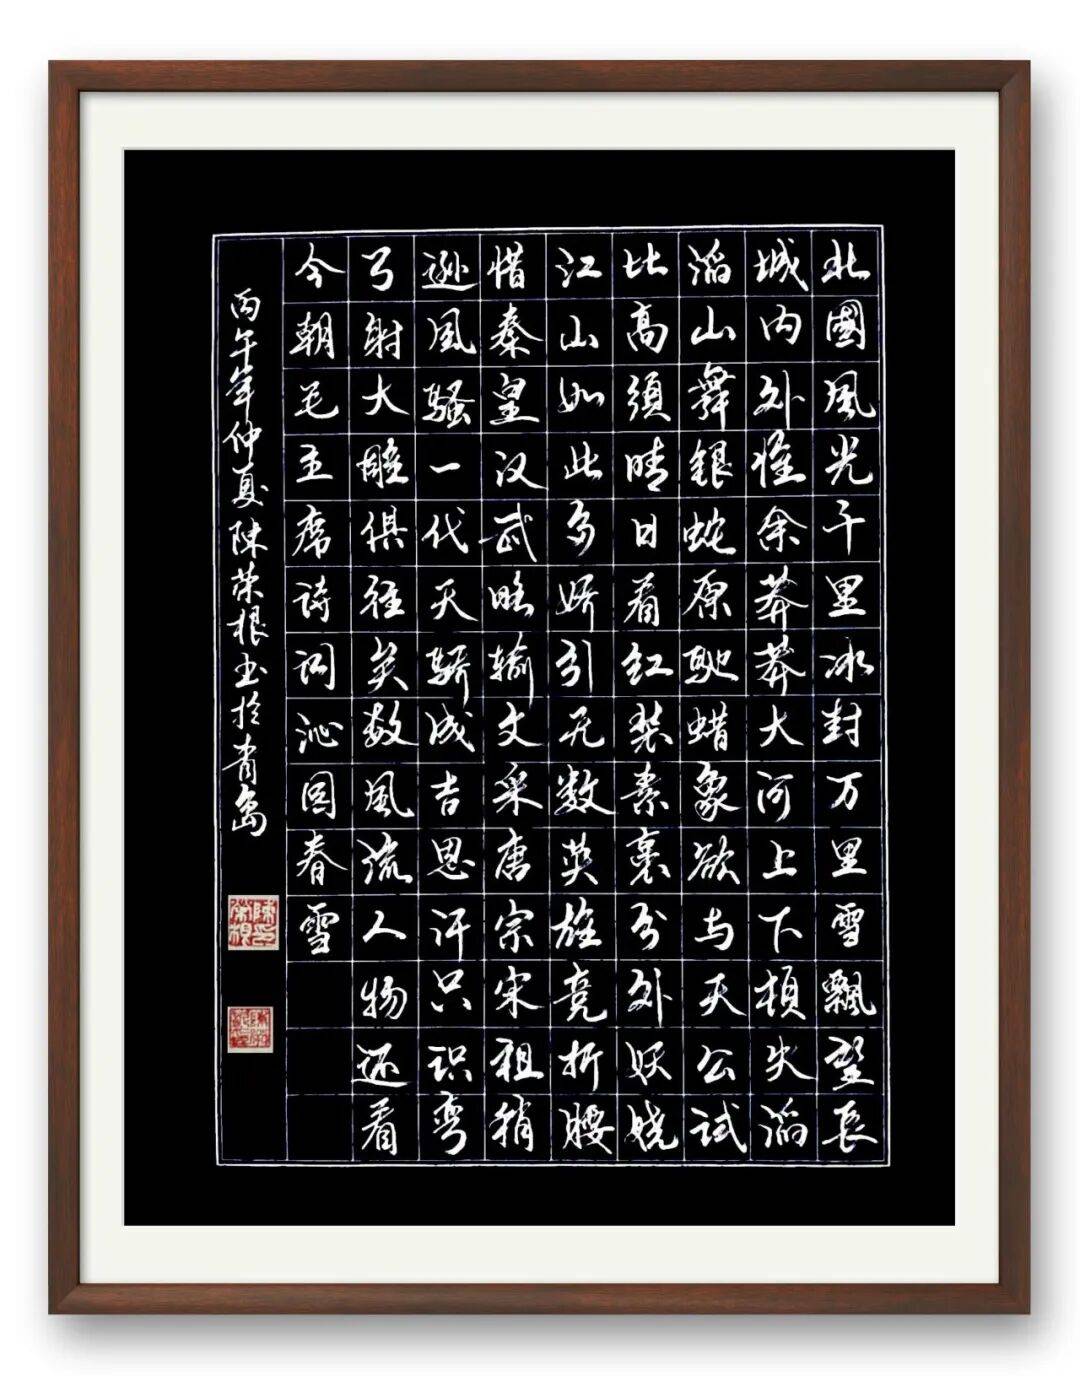 北國風光千里冰封万里雪飄望長
城内外惟余莽莽大河上下頓失滔
滔山舞銀蛇原馳蜡象欲与天公試
比高須晴日看红装素裹分外妖娆
江山如此多娇引无数英雄竞折腰
惜秦皇汉武略输文采唐宗宋祖稍
逊風騷一代天骄成吉思汗只识弯
弓射大雕俱往矣数風流人物还看
今朝毛主席诗词沁园春雪
丙午年仲夏陳荣根书於青岛
陳荣根印